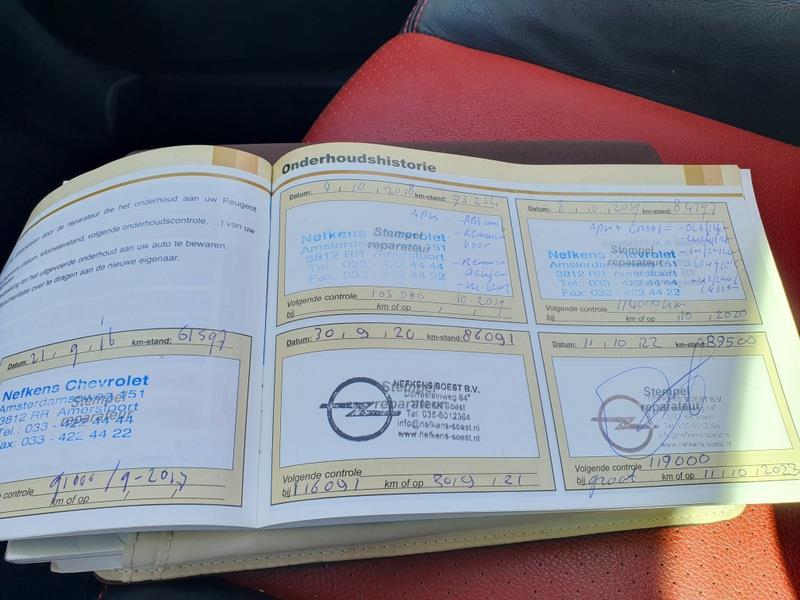 door de reparateur die het onderhoud aan uw Peugeot
datum, kilometerstand, volgende onderhoudscontrole, ...) van uw
uitgevoerde onderhoud aan uw auto te bewaren.
over te dragen aan de nieuwe eigenaar.
Datum: 21, 9, 16 km-stand: 61597
Nefkens Chevrolet
Stempel
Amsterdamseweg 151
reparateur
3812 RR Amersfoort
Tel.: 033 - 422 44 44
Fax: 033 - 422 44 22
controle 91000 / 9-2017
km of op
Onderhoudshistorie
Datum: 4, 10, 2018 km-stand: 73-234
APK
Stempel
Nefkens Chevrolet
reparateur
151
3812 RR Amersfoort
Tel.: 033 - 422 44 44
Fax: 033 - 422 44 22
Volgende controle 103 000 10-2019
bij km of op
Datum: 8, 10, 2019 km-stand: 84197
APK + Groot =
Stempel
Nefkens Chevrolet
reparateur
151
3812 RR Amersfoort
Tel.: 033 - 422 44 44
Fax: 033 - 422 44 22
Volgende controle 114000 km
bij km of op , 10, 2020
Datum: 30, 9, 20 km-stand: 86091
NEFKENS SOEST B.V.
Stempel
reparateur
Soest
Tel. 035-6012364
info@nefkens-soest.nl
www.nefkens-soest.nl
Volgende controle
bij 116091 km of op 30, 9, 21
Datum: 11, 10, 22 km-stand: 89500
Stempel
reparateur
SOEST B.V.
info@nefkens-soest.nl
www.nefkens-soest.nl
Volgende controle 119000
bij groot km of op 11, 10, 2023